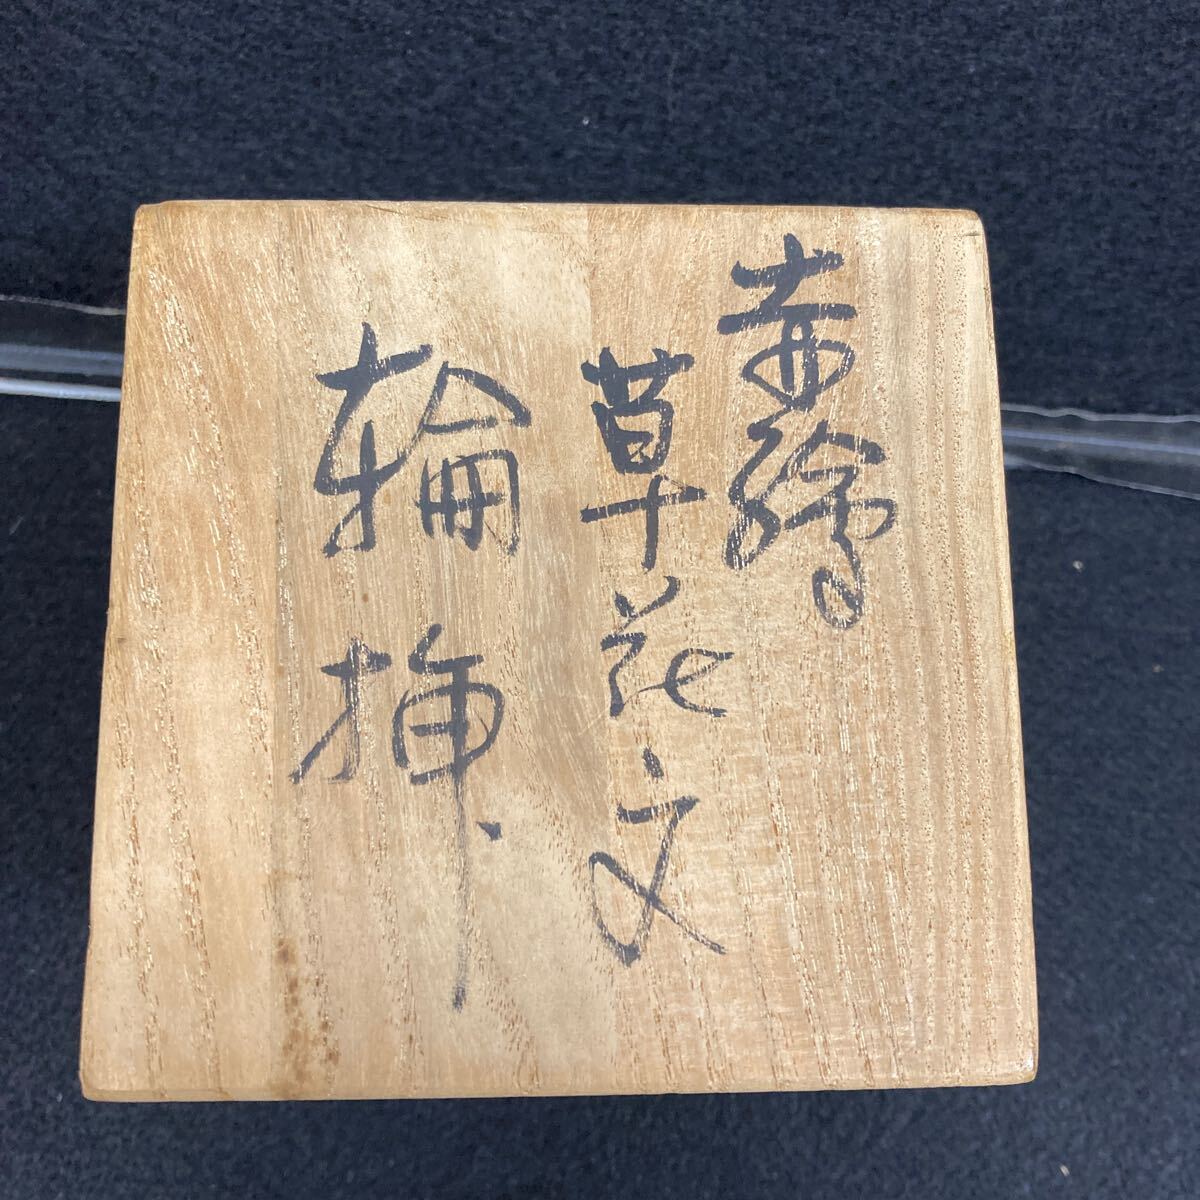 赤繪
草花文
輪挿